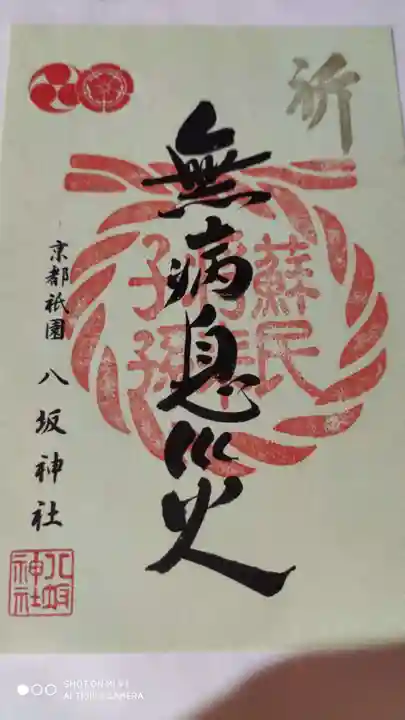 祈
蘇民
将来
子孫
無病息災
京都祇園 八坂神社
八坂
神社
SHOT ON MI 9T
AI TRIPLE CAMERA